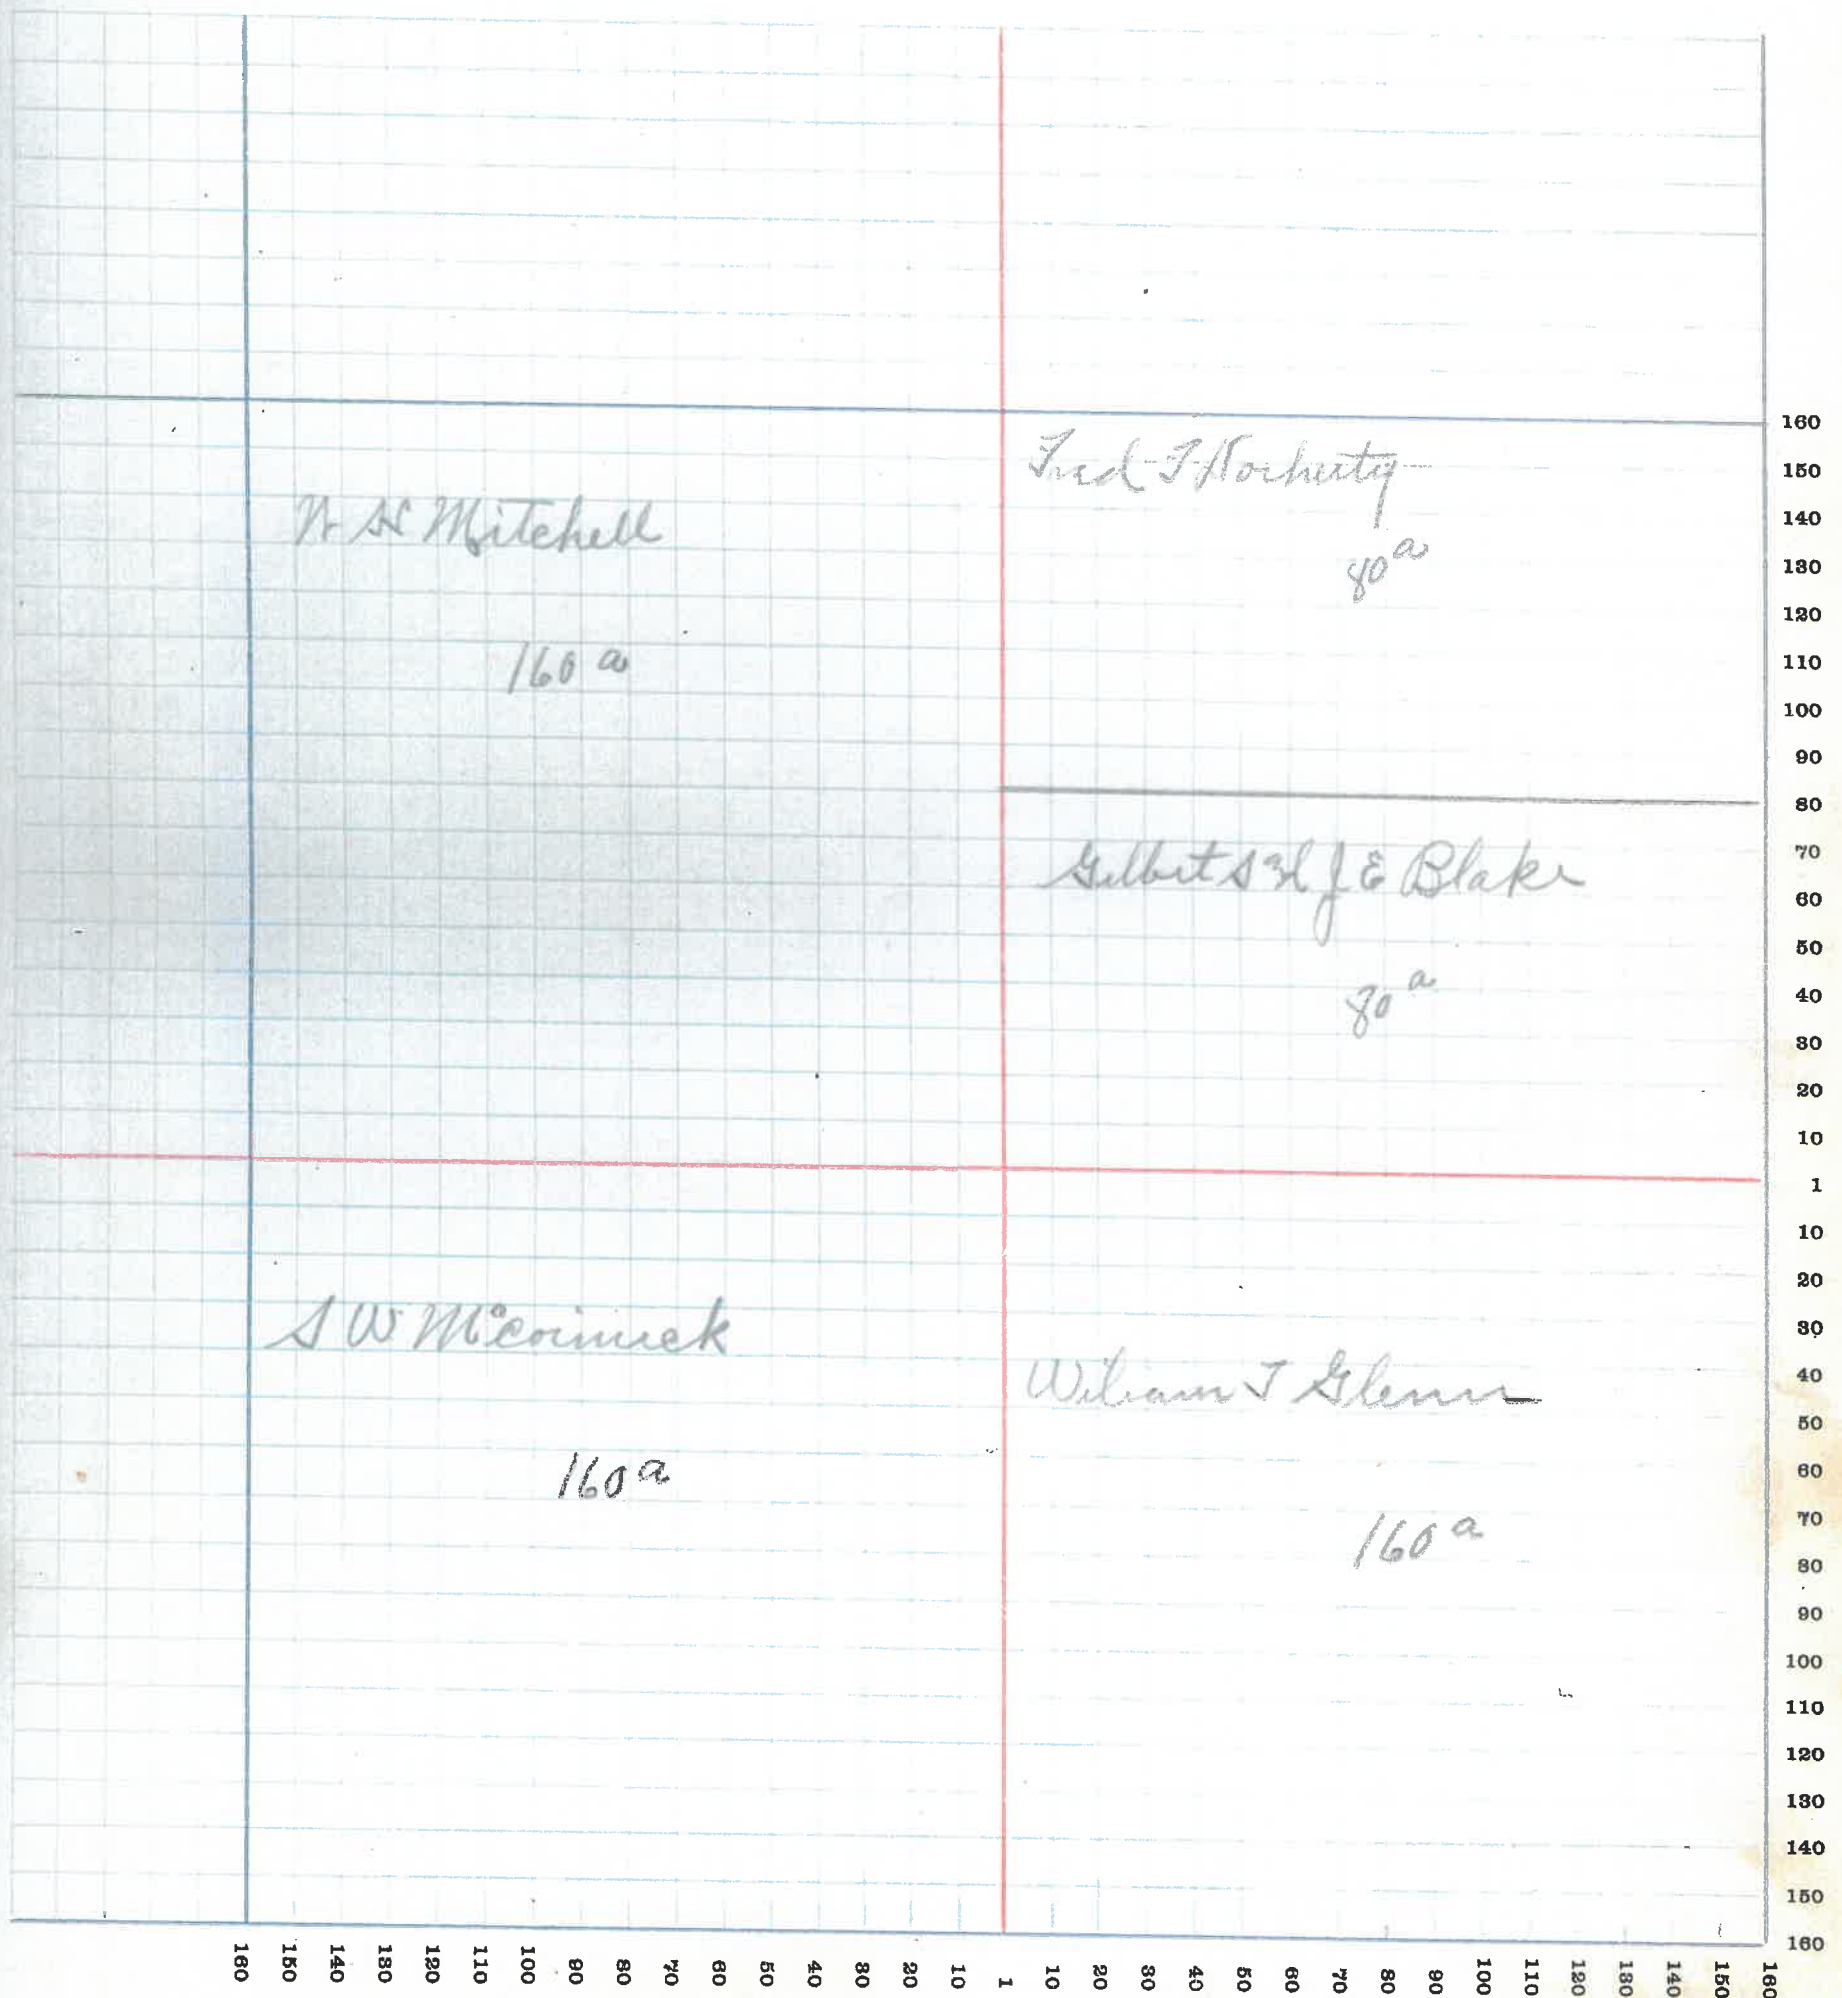 Fred F Dockerty
80 a
N H Mitchell
160 a
Gilbert S & J E Blake
80 a
S W McCormick
160 a
Wiliam T Glenn
160 a
160
150
140
130
120
110
100
90
80
70
60
50
40
30
20
10
1
10
20
30
40
50
60
70
80
90
100
110
120
130
140
150
160
160 150 140 130 120 110 100 90 80 70 60 50 40 30 20 10 1 10 20 30 40 50 60 70 80 90 100 110 120 130 140 150 160